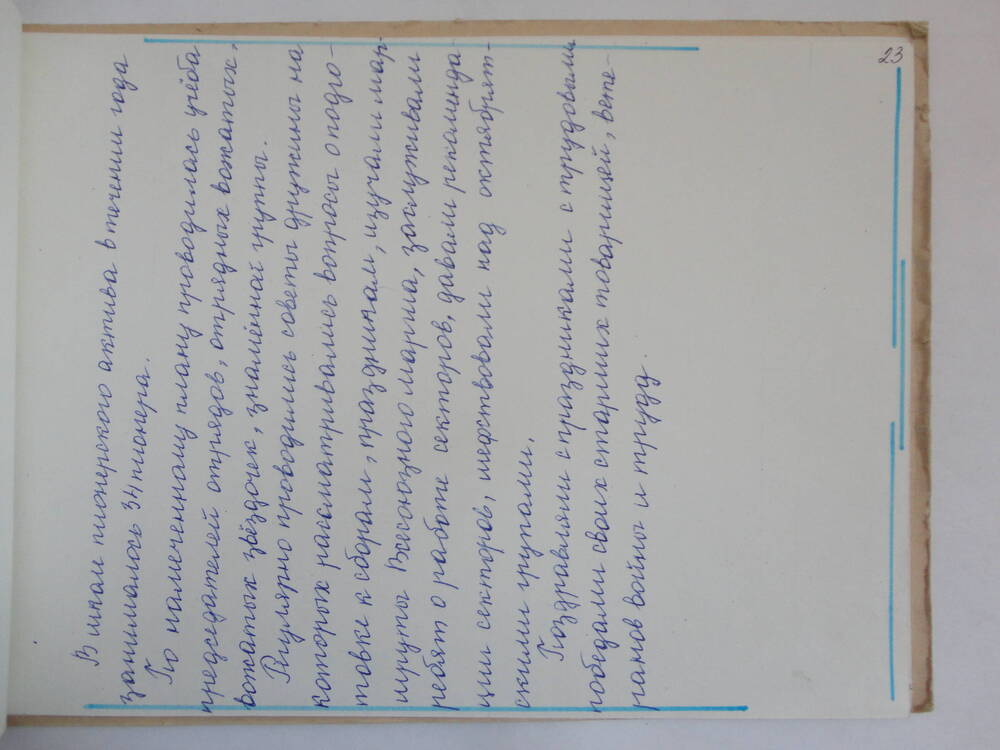 23
В школе пионерского актива в течении года
занималось 34 пионера.
По намеченному плану проводилась учёба
председателей отрядов, отрядных вожатых,
вожатых звёздочек, знамённой группы.
Регулярно проводились советы дружины на
которых рассматривались вопросы о подго-
товке к сборам, праздникам, изучали мар-
шруты Всесоюзного марша, заслуживали
ребят о работе секторов, давали рекоменда
ции секторов, шефствовали над октябрят-
скими групами.
Поздравляли с праздниками с трудовыми
победами своих старших товарищей, вете-
ранов войны и труда.